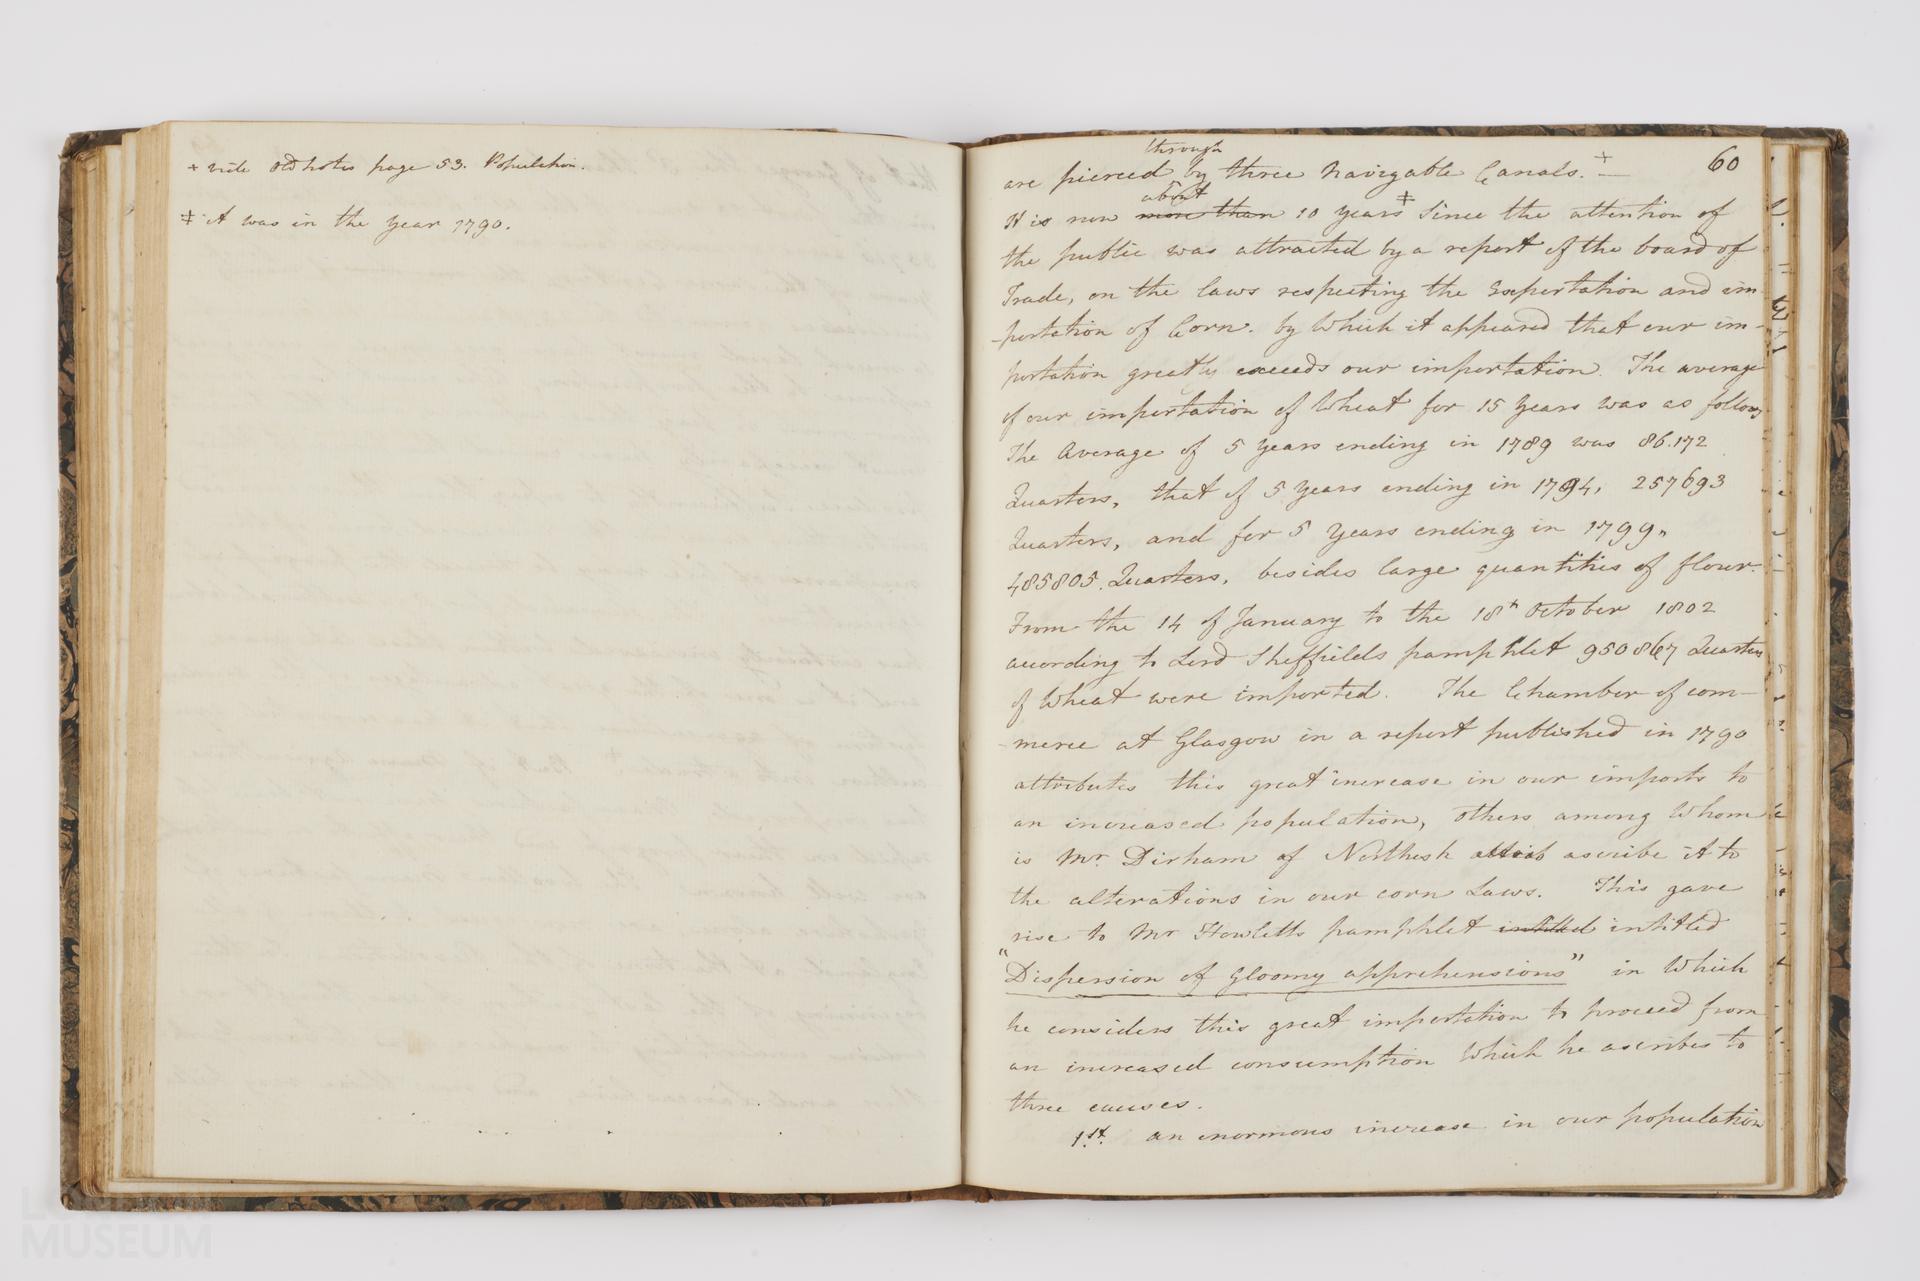 + vide Old notes page 53. Population.
‡ it was in the year 1790.
60
through
are pierced by three Navigable Canals. +
about
It is now more than 10 years ‡ since the attention of
the public was attracted by a report of the board of
Trade, on the laws respecting the Exportation and im-
-portation of Corn. by Which it appeared that our im-
portation greatly exceeds our importation. The average
of our importation of Wheat for 15 years was as follows
The Average of 5 years ending in 1789 was 86.172
Quarters, that of 5 years ending in 1794, 257693
Quarters, and for 5 years ending in 1799,
485805. Quarters, besides large quantities of flour.
From the 14 of January to the 18th October 1802
according to Lord Sheffields pamphlet 950867 Quarters
of Wheat were imported. The Chamber of com-
-merce at Glasgow in a report published in 1790
attributes this great increase in our imports to
an increased population, others among Whom
is Mr. Dirham of Northesk ascribe it to
the alterations in our corn Laws. This gave
rise to Mr Howletts pamphlet intitled intitled
"Dispersion of Gloomy apprehensions" in Which
he considers this great importation to proceed from
an increased consumption Which he ascribes to
three causes.
1st. an enormous increase in our population
LONDON
MUSEUM